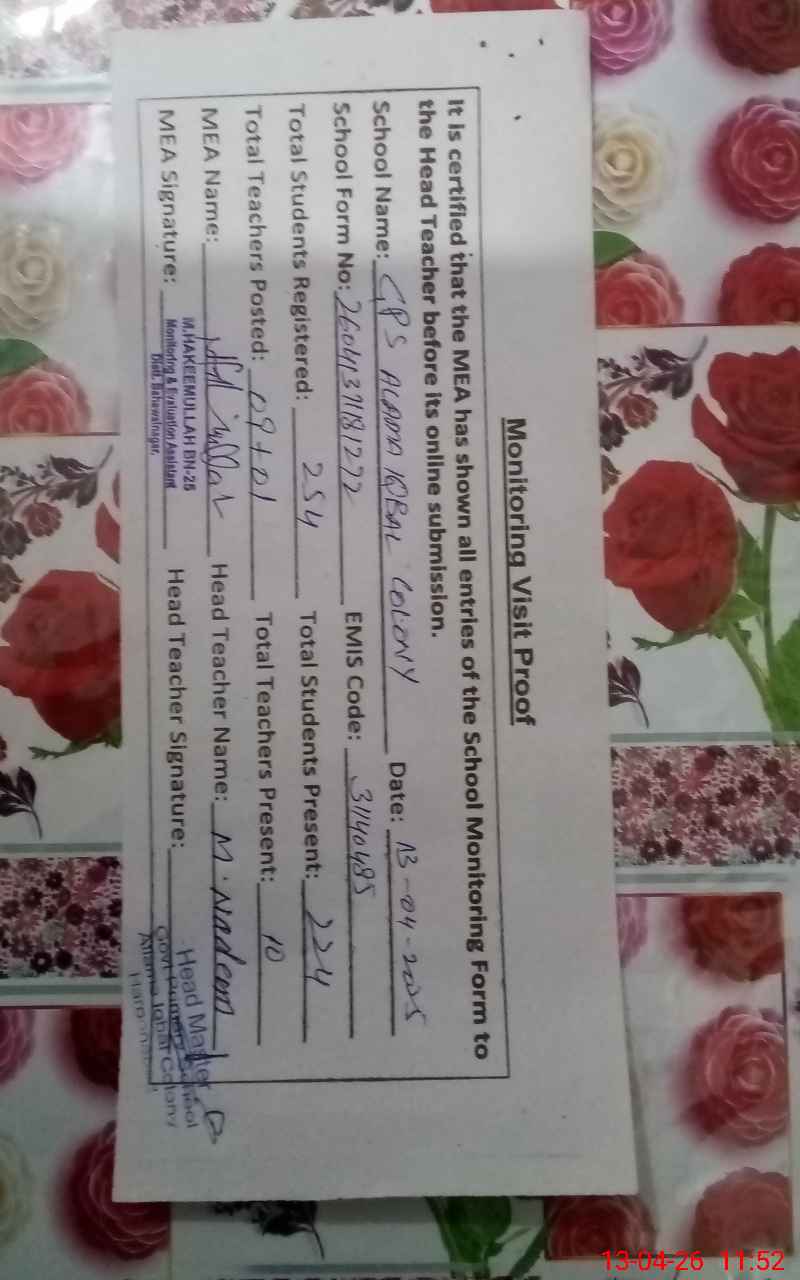 Monitoring Visit Proof
It is certified that the MEA has shown all entries of the School Monitoring Form to
the Head Teacher before its online submission.
School Name: GPS ALAMA IQBAL COLONY Date: 13-04-2025
School Form No: EMIS Code: 31140485
Total Students Registered: 254 Total Students Present: 224
Total Teachers Posted: 09+01 Total Teachers Present: 10
MEA Name: Head Teacher Name: M. Nadeem
MEA Signature: Head Teacher Signature:
M.HAKEEMULLAH BN-25
Monitoring & Evaluation Assistant
Distt. Bahawalnagar.
Head Master
Govt Primary School
Allama Iqbal Colony
13-04-26 11:52